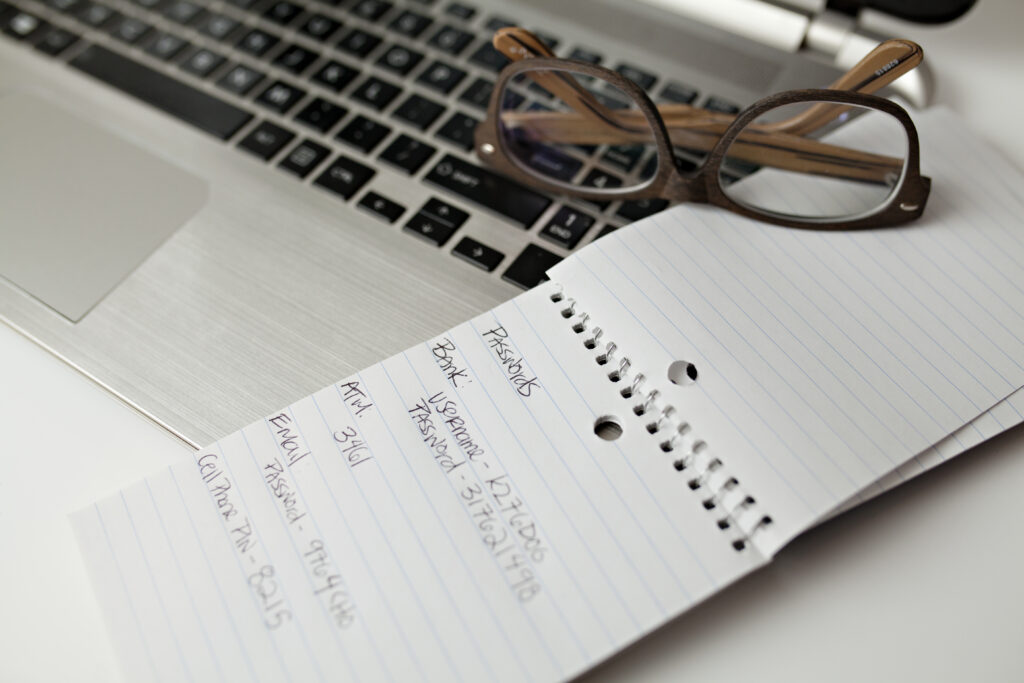 Passwords
Bank:
Username - K276D06
Password - 317621498
ATM. 3461
Email:
Password - 9764GHO
Cell Phone PIN - 8215
SHIFT
CTRL
1
END